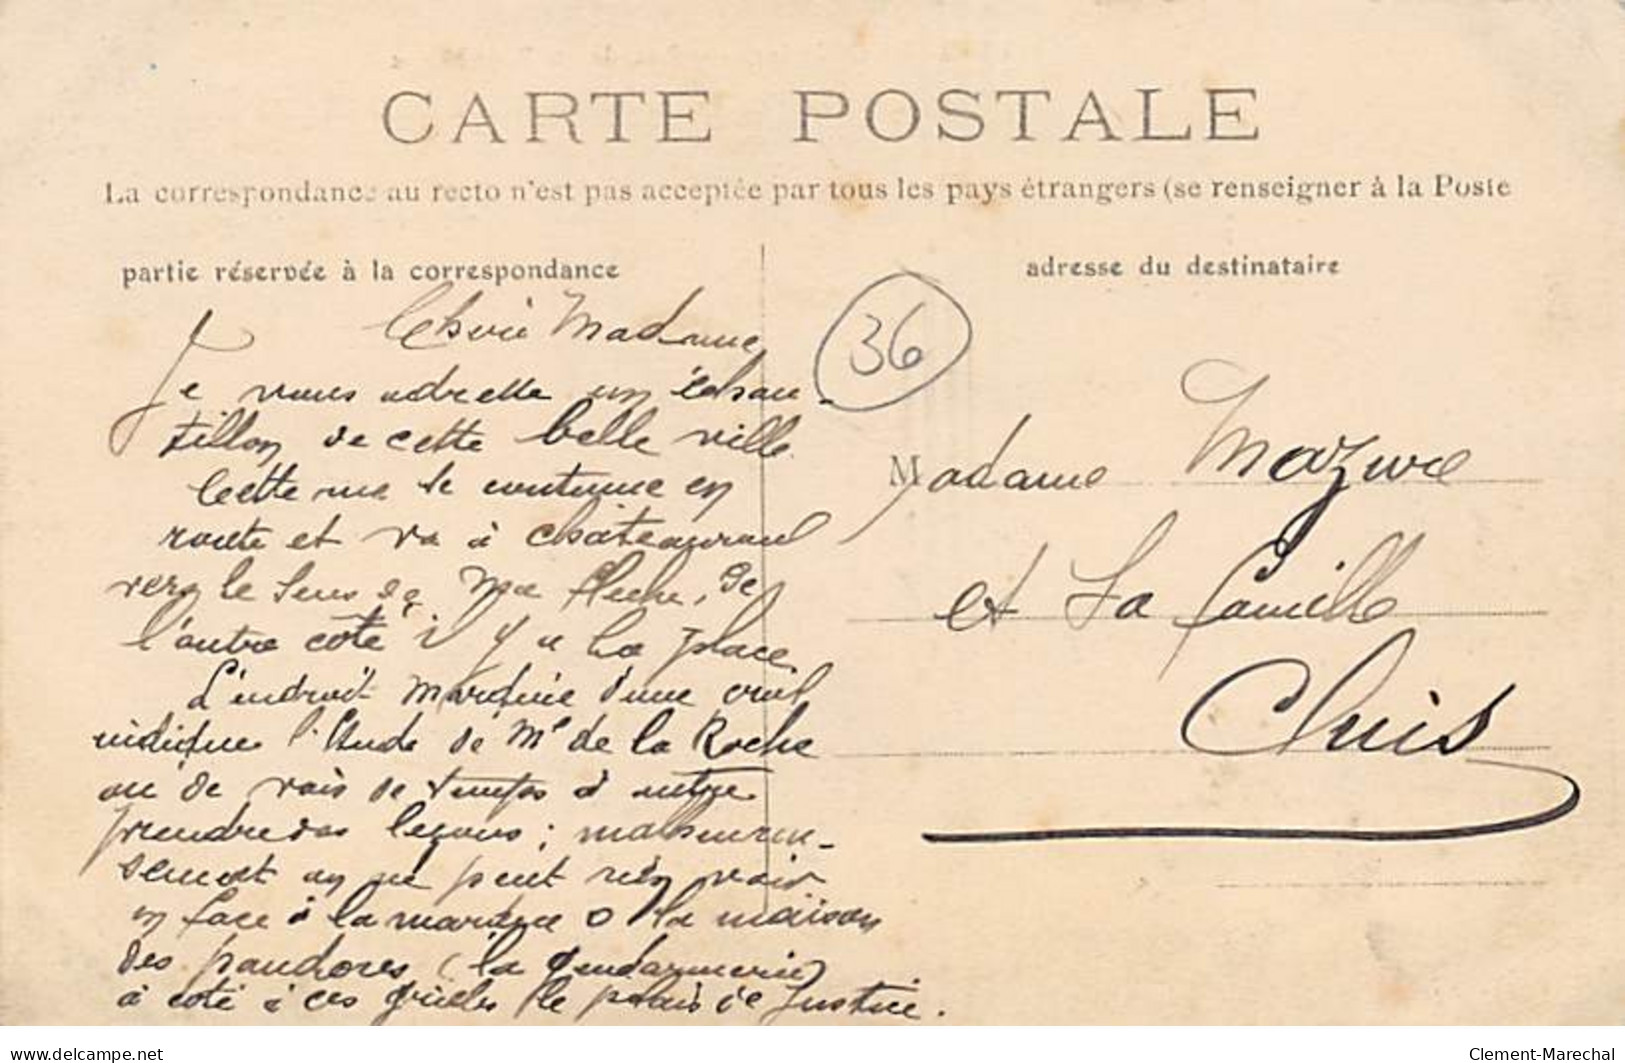 CARTE POSTALE
La correspondance au recto n'est pas acceptée par tous les pays étrangers (se renseigner à la Poste
partie réservée à la correspondance
adresse du destinataire
36
Chère Madame
Je vous adresse un échan-
tillon de cette belle ville.
Cette rue se continue en
route et va à Chateauroux
vers le sens de ma flèche, De
l'autre coté il y a la place
L'endroit marquée d'une croix
indique l'Etude de Me de la Roche
ou je vais de temps à autre
prendre des leçons ; malheureu-
sement on ne peut rien voir
en face à la marque o la maison
des pandores (la gendarmerie)
à coté à ces grilles le palais de Justice.
Madame Mazure
et La famille
Cluis
delcampe.net
Clement-Marechal